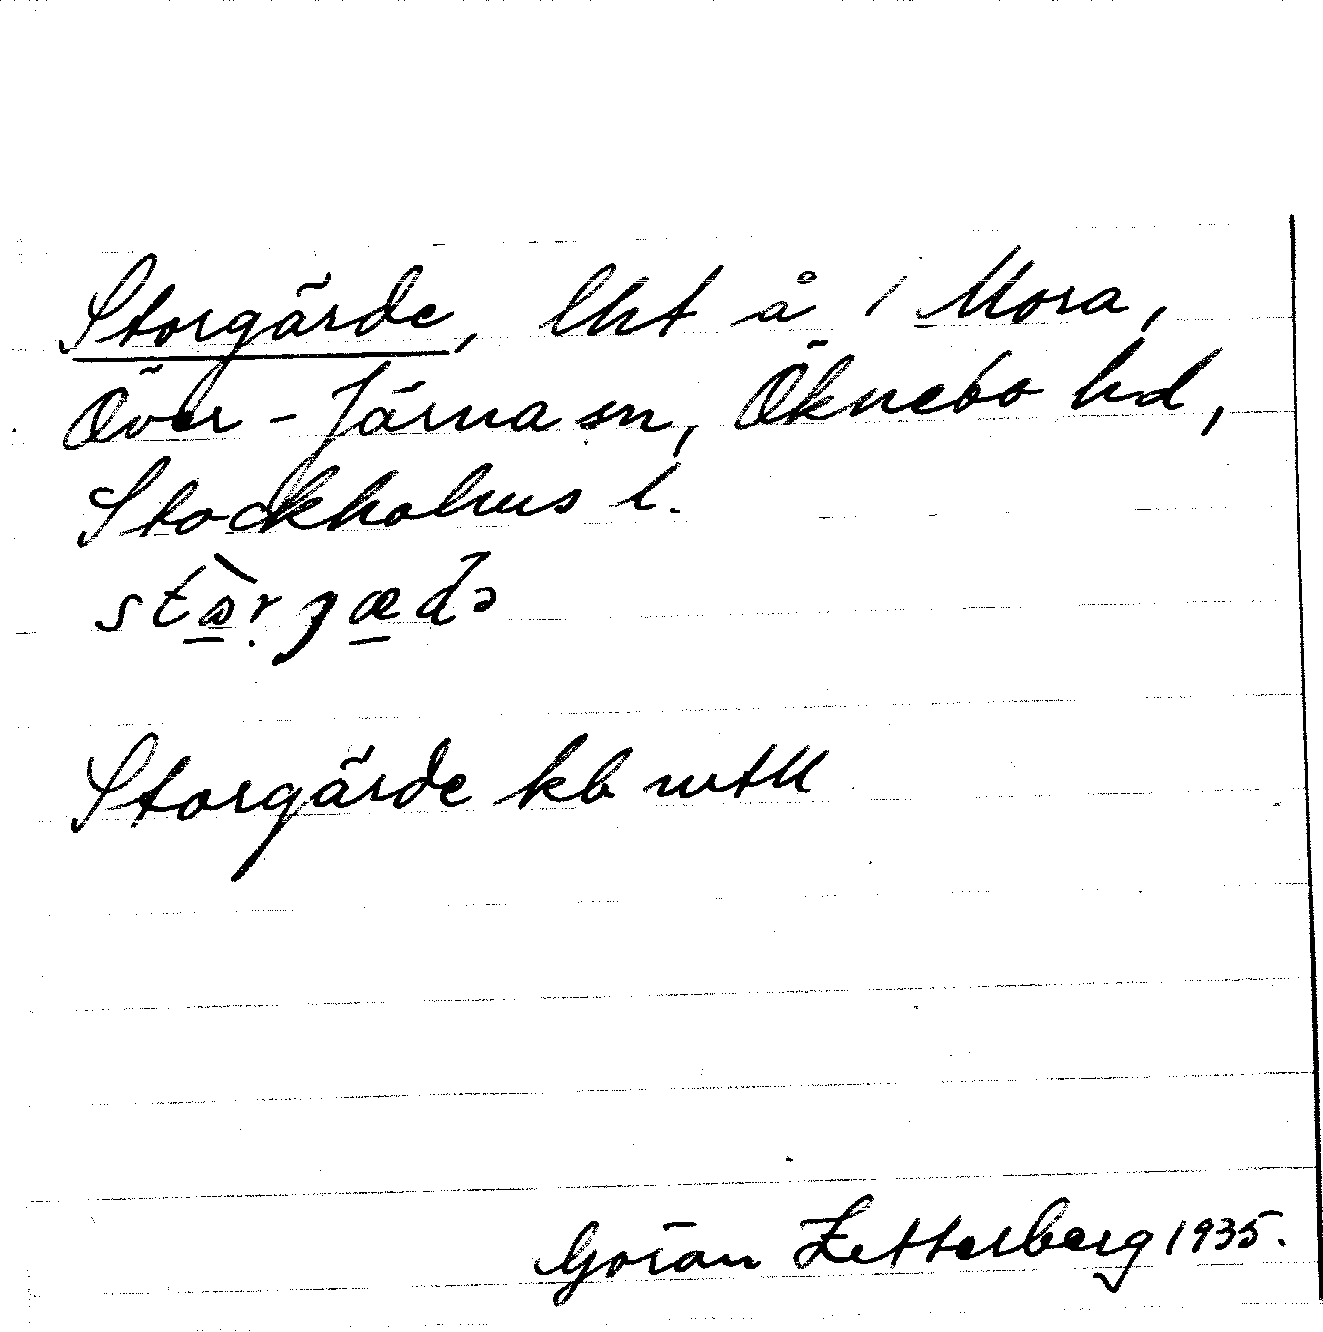 Storgärde, lht å 1 Mora,
Över-Järna sn, Öknebo hd,
Stockholms l.
Storgärde kb
Göran Zetterberg 1935.